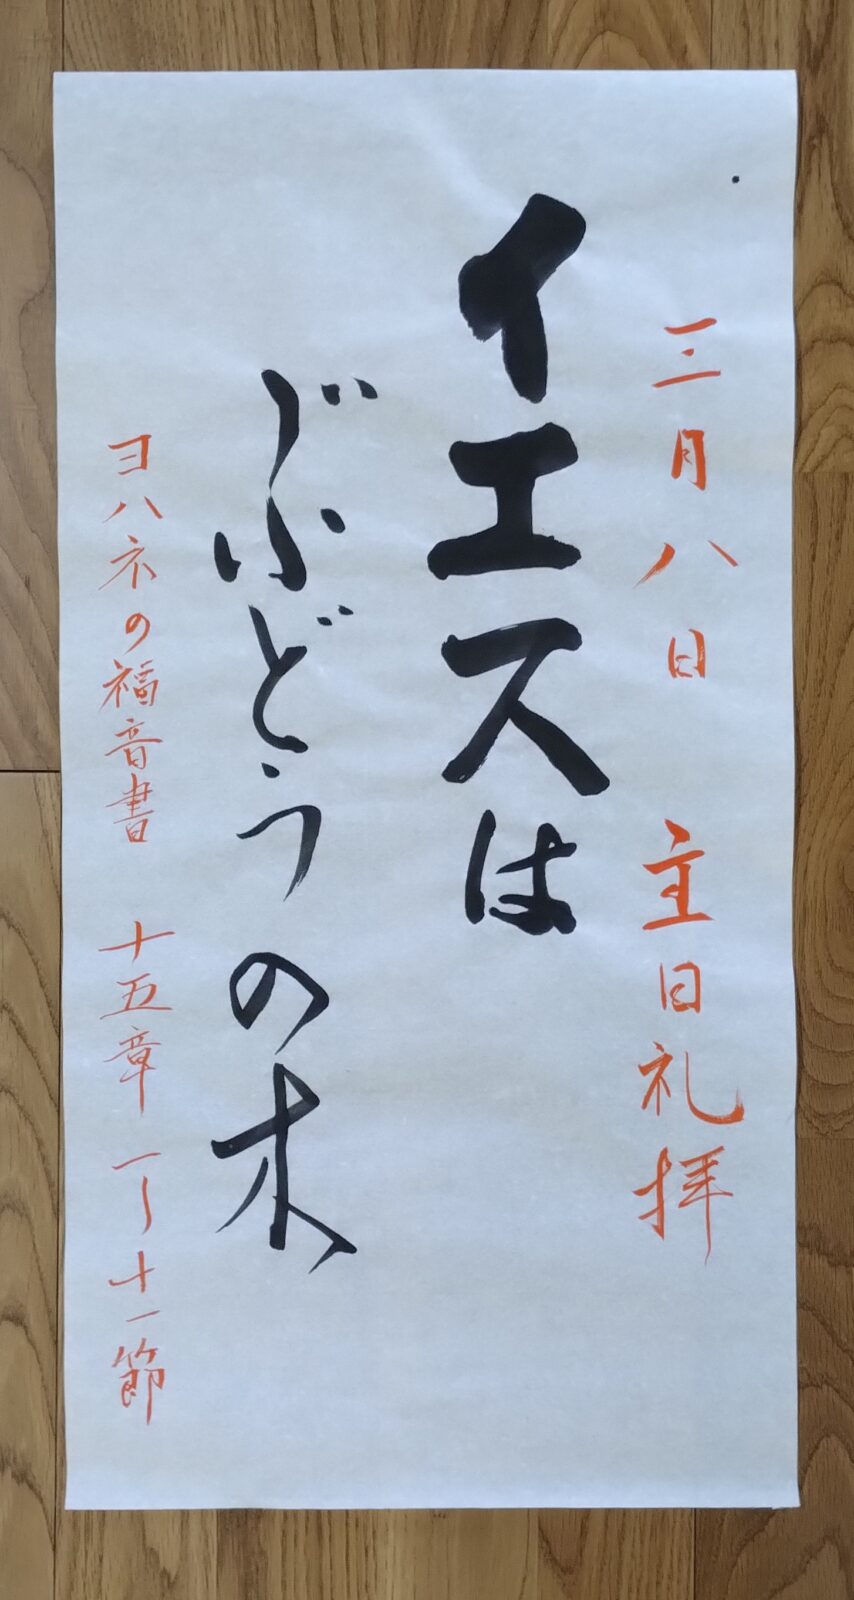 三月八日 主日礼拝
イエスは
ぶどうの木
ヨハネの福音書 十五章 一〜十一節